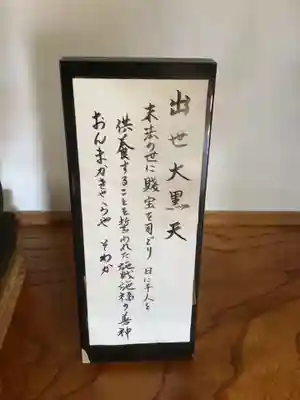 出世大黒天
末法の世に財宝を司どり 日に千人を
供養することを誓われた施戦施福の善神
おんまかきゃらや そわか